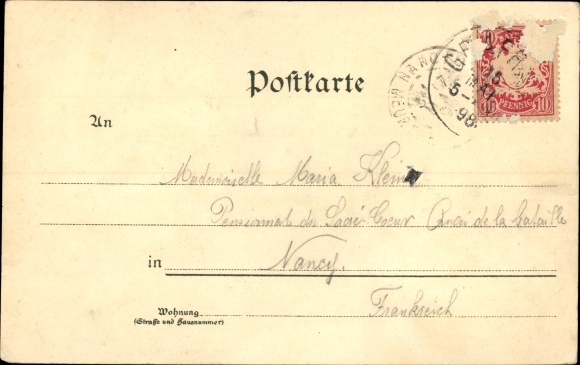 Postkarte
An
Mademoiselle Maria Klein
Pensionnat du Sacré Coeur Quai de la bataille
in Nancy.
Frankreich
Wohnung
(Straße und Hausnummer)
PFENNIG 10
MAI
98